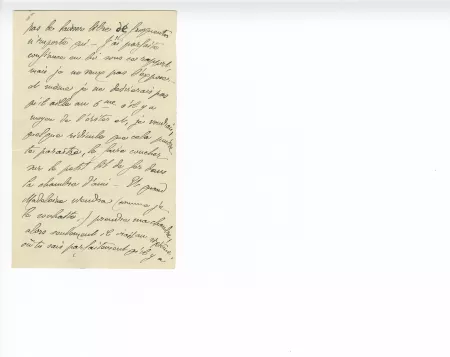 pas le laisser libre de fréquenter
n'importe qui – J'ai parfaite
confiance en lui sous ce rapport,
mais je ne veux pas l'exposer.
et même je ne désirerais pas
qu'il aille au 6me s'il y a
moyen de l'éviter et, je voudrais,
quelque ridicule que cela puisse
te paraître, le faire coucher
sur le petit lit de fer dans
la chambre d'ami – Et quand
Madeleine viendra (comme je
le souhaite) prendre ma chambre,
alors seulement, il irait au sixième,
où tu sais parfaitement qu'il y a